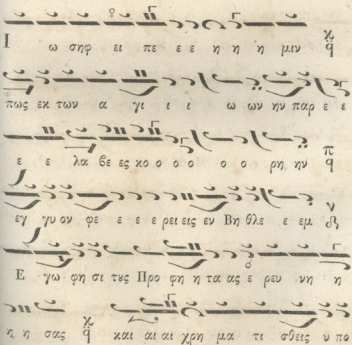 Ι ω σηφ ει πε ε ε η η η μιν
πως εκ των α γι ι ι ω ων ην παρ ε ε
ε ε λα βε ες κο ο ο ο ο ο ρη ην
εγ γυ ον φε ε ε ε ρει εις εν Βη θλε ε εμ
Ε γω φη σι τȣς Προ φη η τα ας ε ρευ νη η
η η σας και αι αι χρη μα τι σθεις υ πο